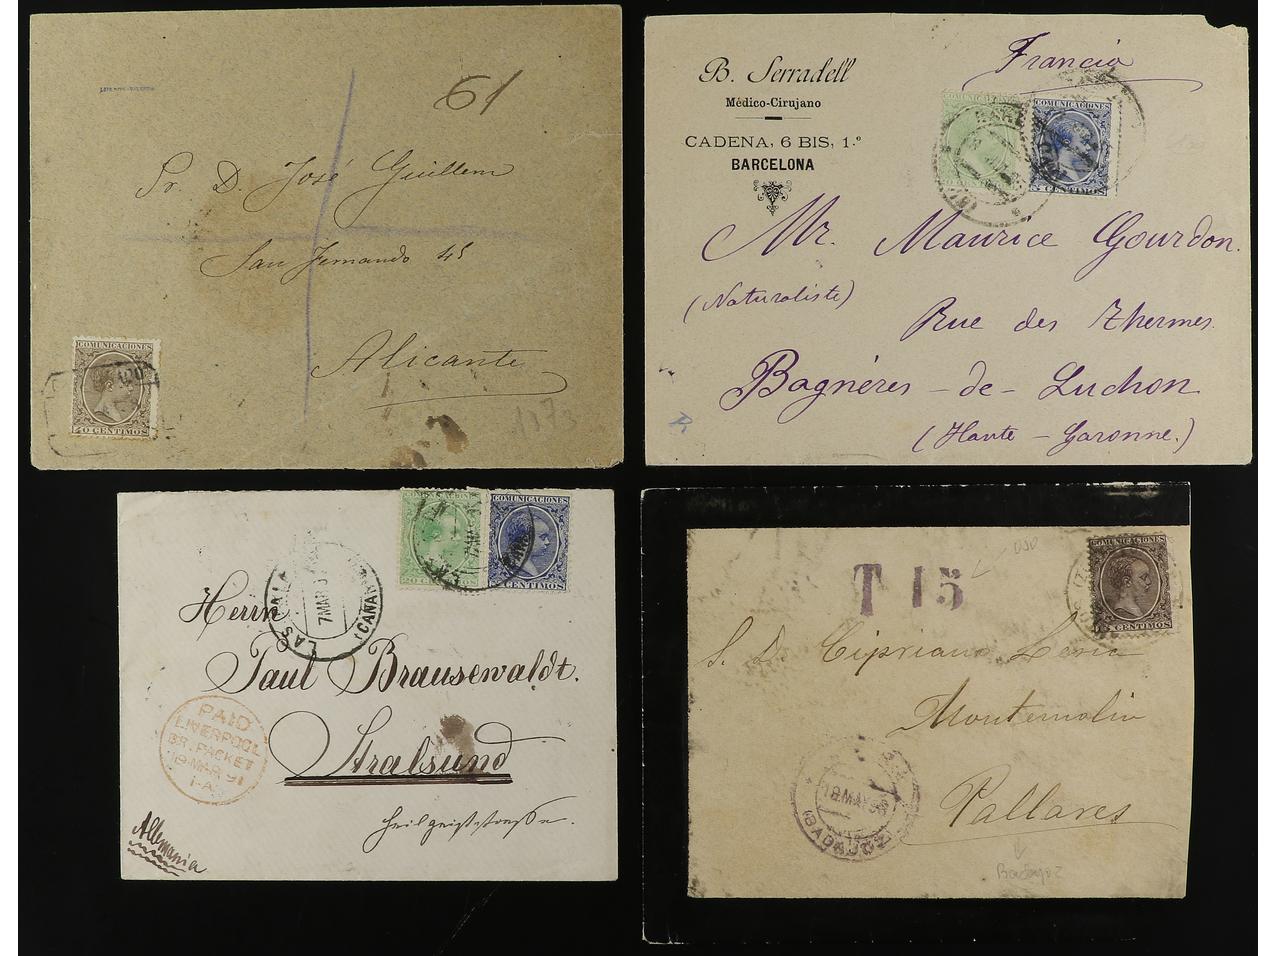 61
Sr. D. José Guillem
San Fernando 45
Alicante
COMUNICACIONES
CENTIMOS
B. Serradell
Médico-Cirujano
CADENA, 6 BIS, 1.º
BARCELONA
Francia
COMUNICACIONES
COMUNICACIONES
5 CENTIMOS
Mr. Maurice Gourdon.
(Naturaliste)
Rue des Thermes.
Bagnères-de-Luchon
(Haute-Garonne.)
COMUNICACIONES
20 CENTIMOS
COMUNICACIONES
CENTIMOS
LAS PAL
7 MAR
(CANAR
Herrn
Paul Brausewaldt.
Stralsund
Heilgeiststraße.
PAID
LIVERPOOL
BR. PACKET
18 MAR 91
1-A
Allemania
COMUNICACIONES
CENTIMOS
T 15
S. D. Cipriano
Montemolin
Pallares
18 MAY
(BADAJOZ)
Badajoz